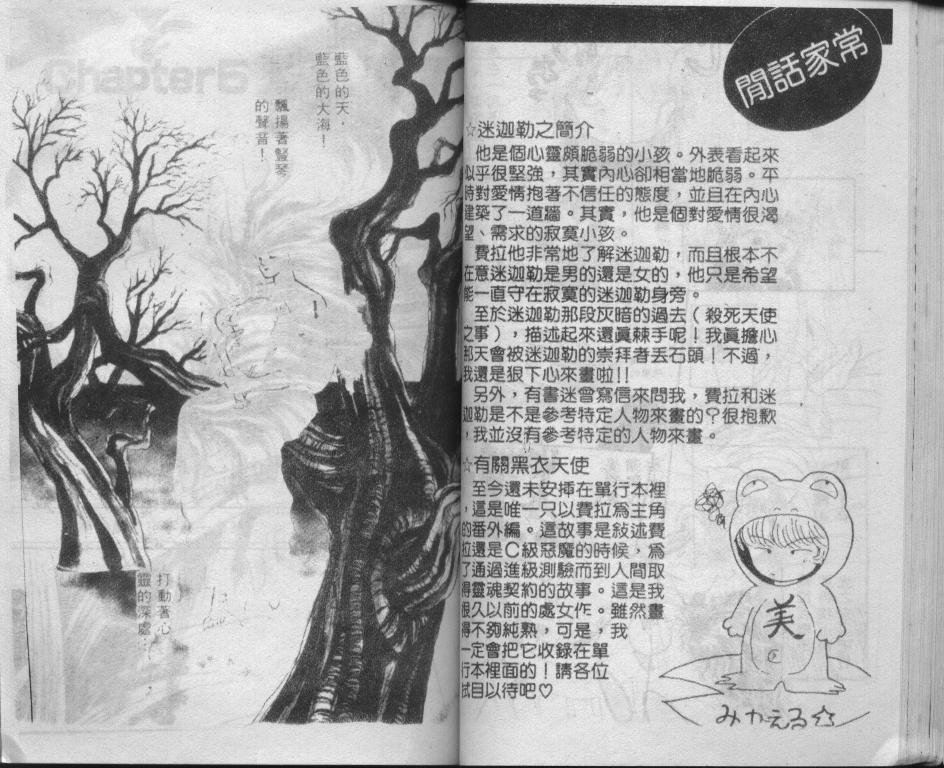 Chapter6
藍色的天，
藍色的大海！
飄揚著豎琴
的聲音！
打動著心
靈的深處…
閒話家常
☆迷迦勒之簡介
他是個心靈頗脆弱的小孩。外表看起來
似乎很堅強，其實內心卻相當地脆弱。平
時對愛情抱著不信任的態度，並且在內心
建築了一道牆。其實，他是個對愛情很渴
望、需求的寂寞小孩。
費拉他非常地了解迷迦勒，而且根本不
在意迷迦勒是男的還是女的，他只是希望
能一直守在寂寞的迷迦勒身旁。
至於迷迦勒那段灰暗的過去（殺死天使
之事），描述起來還眞棘手呢！我眞擔心
那天會被迷迦勒的崇拜者丟石頭！不過，
我還是狠下心來畫啦!!
另外，有書迷曾寫信來問我，費拉和迷
迦勒是不是參考特定人物來畫的？很抱歉
，我並沒有參考特定的人物來畫。
☆有關黑衣天使
至今還未安揷在單行本裡
，這是唯一只以費拉為主角
的番外編。這故事是敍述費
拉還是C級惡魔的時候，為
了通過進級測驗而到人間取
得靈魂契約的故事。這是我
很久以前的處女作。雖然畫
得不夠純熟，可是，我
一定會把它收錄在單
行本裡面的！請各位
拭目以待吧♡
美
みかえる☆